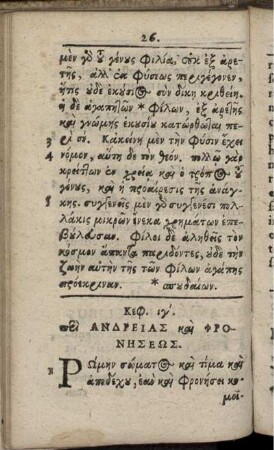 26.
μὲν γὸ ὖ γένυς φιλία, ὐκ ἐξ ἀρε-
τῆς, ἀλλ ἐκ φύσεως περιγέγονεν,
ἥτις ὐδὲ ἑκυσίῳ σὺν δίκῃ κριθείη.
ἡ δὲ ἀγαπητῶν * φίλων, ἐξ ἀρετῆς
καὶ γνώμης ἑκυσίυ κατώρθωται πε-
3 ρί σν. Κἀκείνη μὲν τὴν φύσιν ἔχει
4 νόμον, αὕτη δὲ τὸν θεόν. πολλῷ γὰρ
κρείττων ἐν χρείᾳ καὶ ὁ τρόπος ὖ
γένυς, καὶ ἡ προαίρεσις τῆς ἀνάγ-
8 κης. συγγενεῖς μὲν γὸ συγγενέσι πολ-
λάκις μικρῶν ἕνεκα χρημάτων ἐπε-
βύλευσαν. φίλοι δὲ ἀληθεῖς τὸν
κόσμον ἅπαντα παριδόντες, ὐδὲ τὴν
ζωὴν αὐτὴν τῆς τῶν φίλων ἀγάπης
προέκριναν. * σπυδαίων.
Κεφ. ιγʹ.
περὶ ΑΝΔΡΕΙΑΣ καὶ ΦΡΟ-
ΝΗΣΕΩΣ.
ΡΩμην σώματος καὶ τίμα καὶ
ἀποδέχυ, ἐὰν καὶ φρονήσει κο-
μοί-